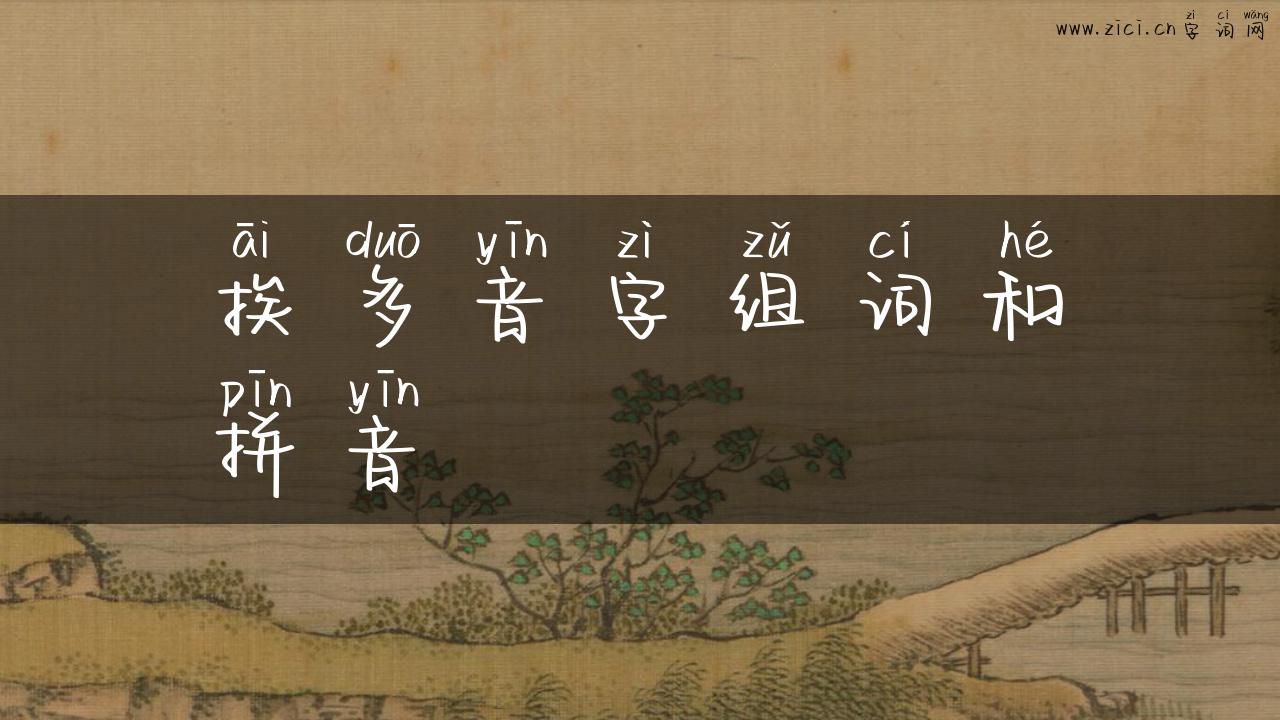 zì cí wǎng
www.zici.cn 字词网
āi duō yīn zì zǔ cí hé
挨多音字组词和
pīn yīn
拼音